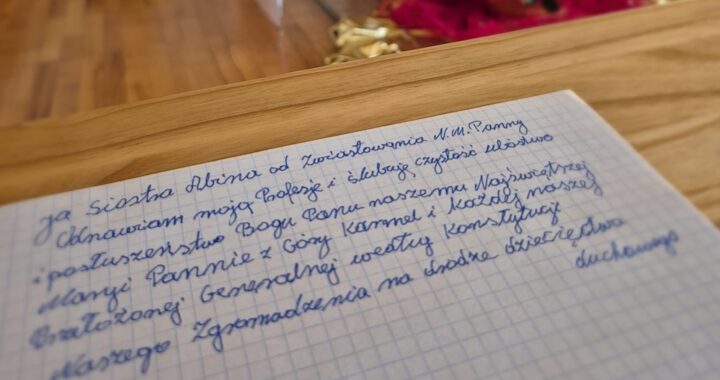 Ja Siostra Albina od Zwiastowania N.M.Panny
Odnawiam moją Profesję i ślubuję czystość ubóstwo
i posłuszeństwo Bogu Panu naszemu Najświętszej
Maryi Pannie z Góry Karmel i każdej naszej
Przełożonej Generalnej według Konstytucji
Naszego Zgromadzenia na drodze dziecięctwa
duchowego